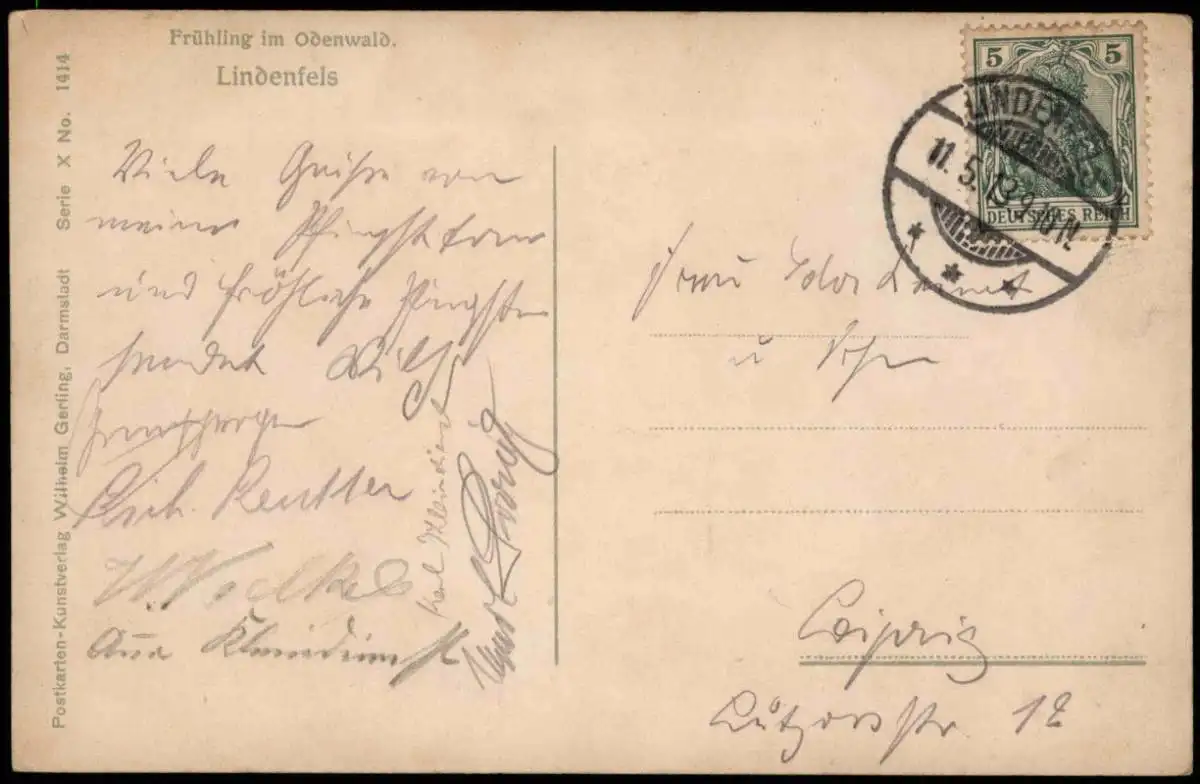 Frühling im Odenwald.
Lindenfels
Postkarten-Kunstverlag Wilhelm Gerling, Darmstadt Serie X No. 1414
Viele Grüße von
meiner
und fröhliche Pfingsten
sendet Willy
Rich. Reutter
Anna Kleindienst
Karl Kleindienst
5 5
DEUTSCHES REICH
LINDENFELS
11.5.13.9-10N.
Frau
u Sohn
Leipzig
Lützowstr 12